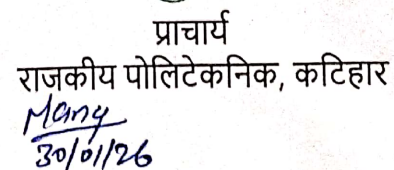 प्राचार्य
राजकीय पोलिटेकनिक, कटिहार
30/01/26